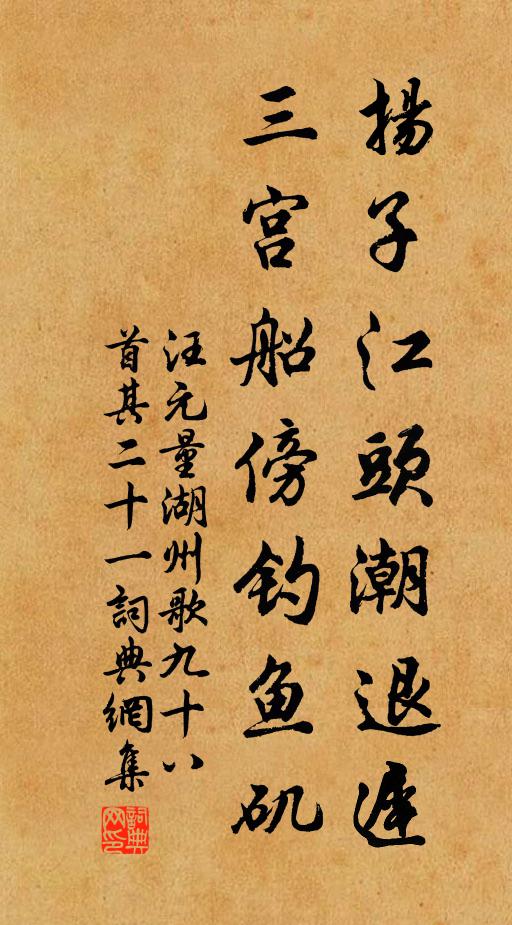 揚子江頭潮退遲
三宮船傍釣魚矶
汪元量湖州歌九十八
首其二十一詞典網集
詞典
网印